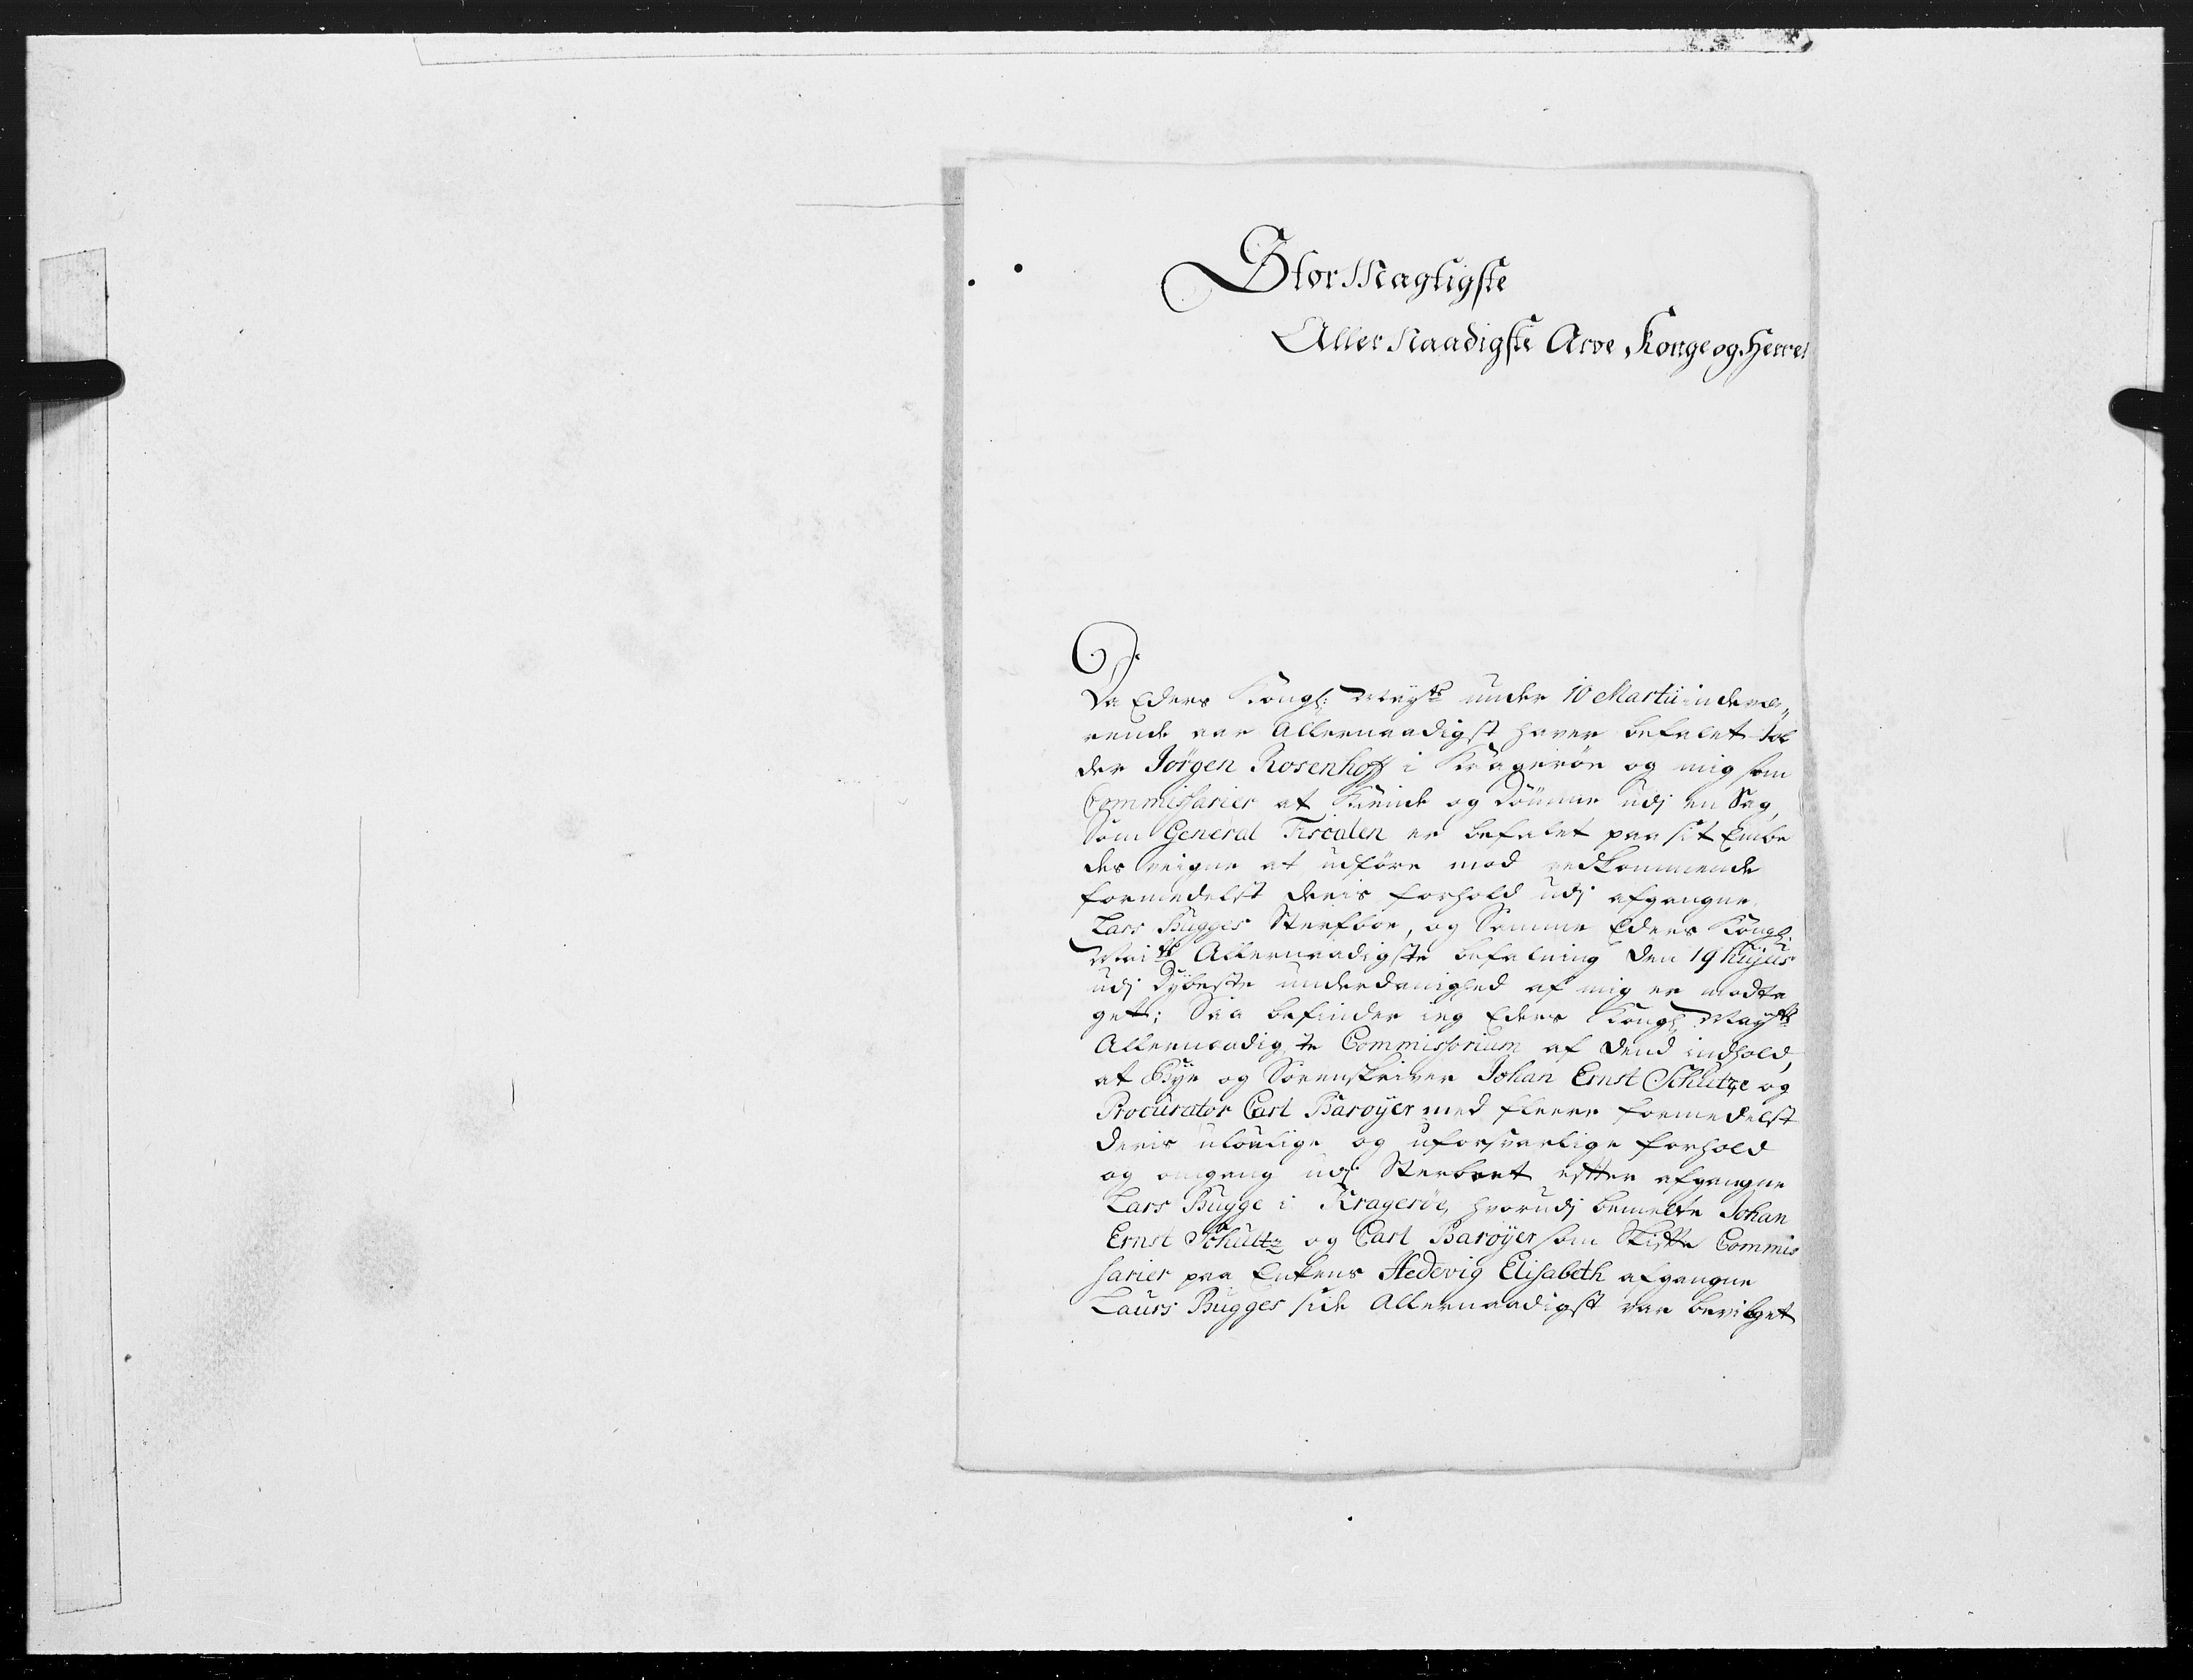 StorMagtigste
AllerNaadigste Arve Konge og Herre!
Da Eders Kongl: Mayts under 10 Martii indevæ„
rende aar Allernaadigst haver befalet Tol
der Jörgen Rosenhoff i Kragerøe og mig som
Commissarier at Kiende og Dömme udj en Sag,
Som General Fiscalen er befalet paa sit Embe
des veigne at udföre mod vedkommende
formedelst deris forhold udj afgangne
Lars Bugges Sterfboe, og Samme Eders Kongl:
Maits Allernaadigste befalning den 19 hujus
udj Dybeste underdanighed af mig er modta
get; Saa befinder ieg Eders Kongl Mayts
Allernaadigste Commissorium af dend indhold,
at Bye og Sorenskriver Johan Ernst Schultze og
Procurator Carl Barøyer med fleere formedelst
deris ulovlige og uforsvarlige forhold
og omgang udj Sterboet efter afgangne
Lars Bugge i Kragerøe, hvorudj bemelte Johan
Ernst Schultz og Carl Barøyer som Skifte Commis
sarier paa Enkens Hedevig Elisabeth afgangne
Laurs Bugges side Allernaadigst var bevilget